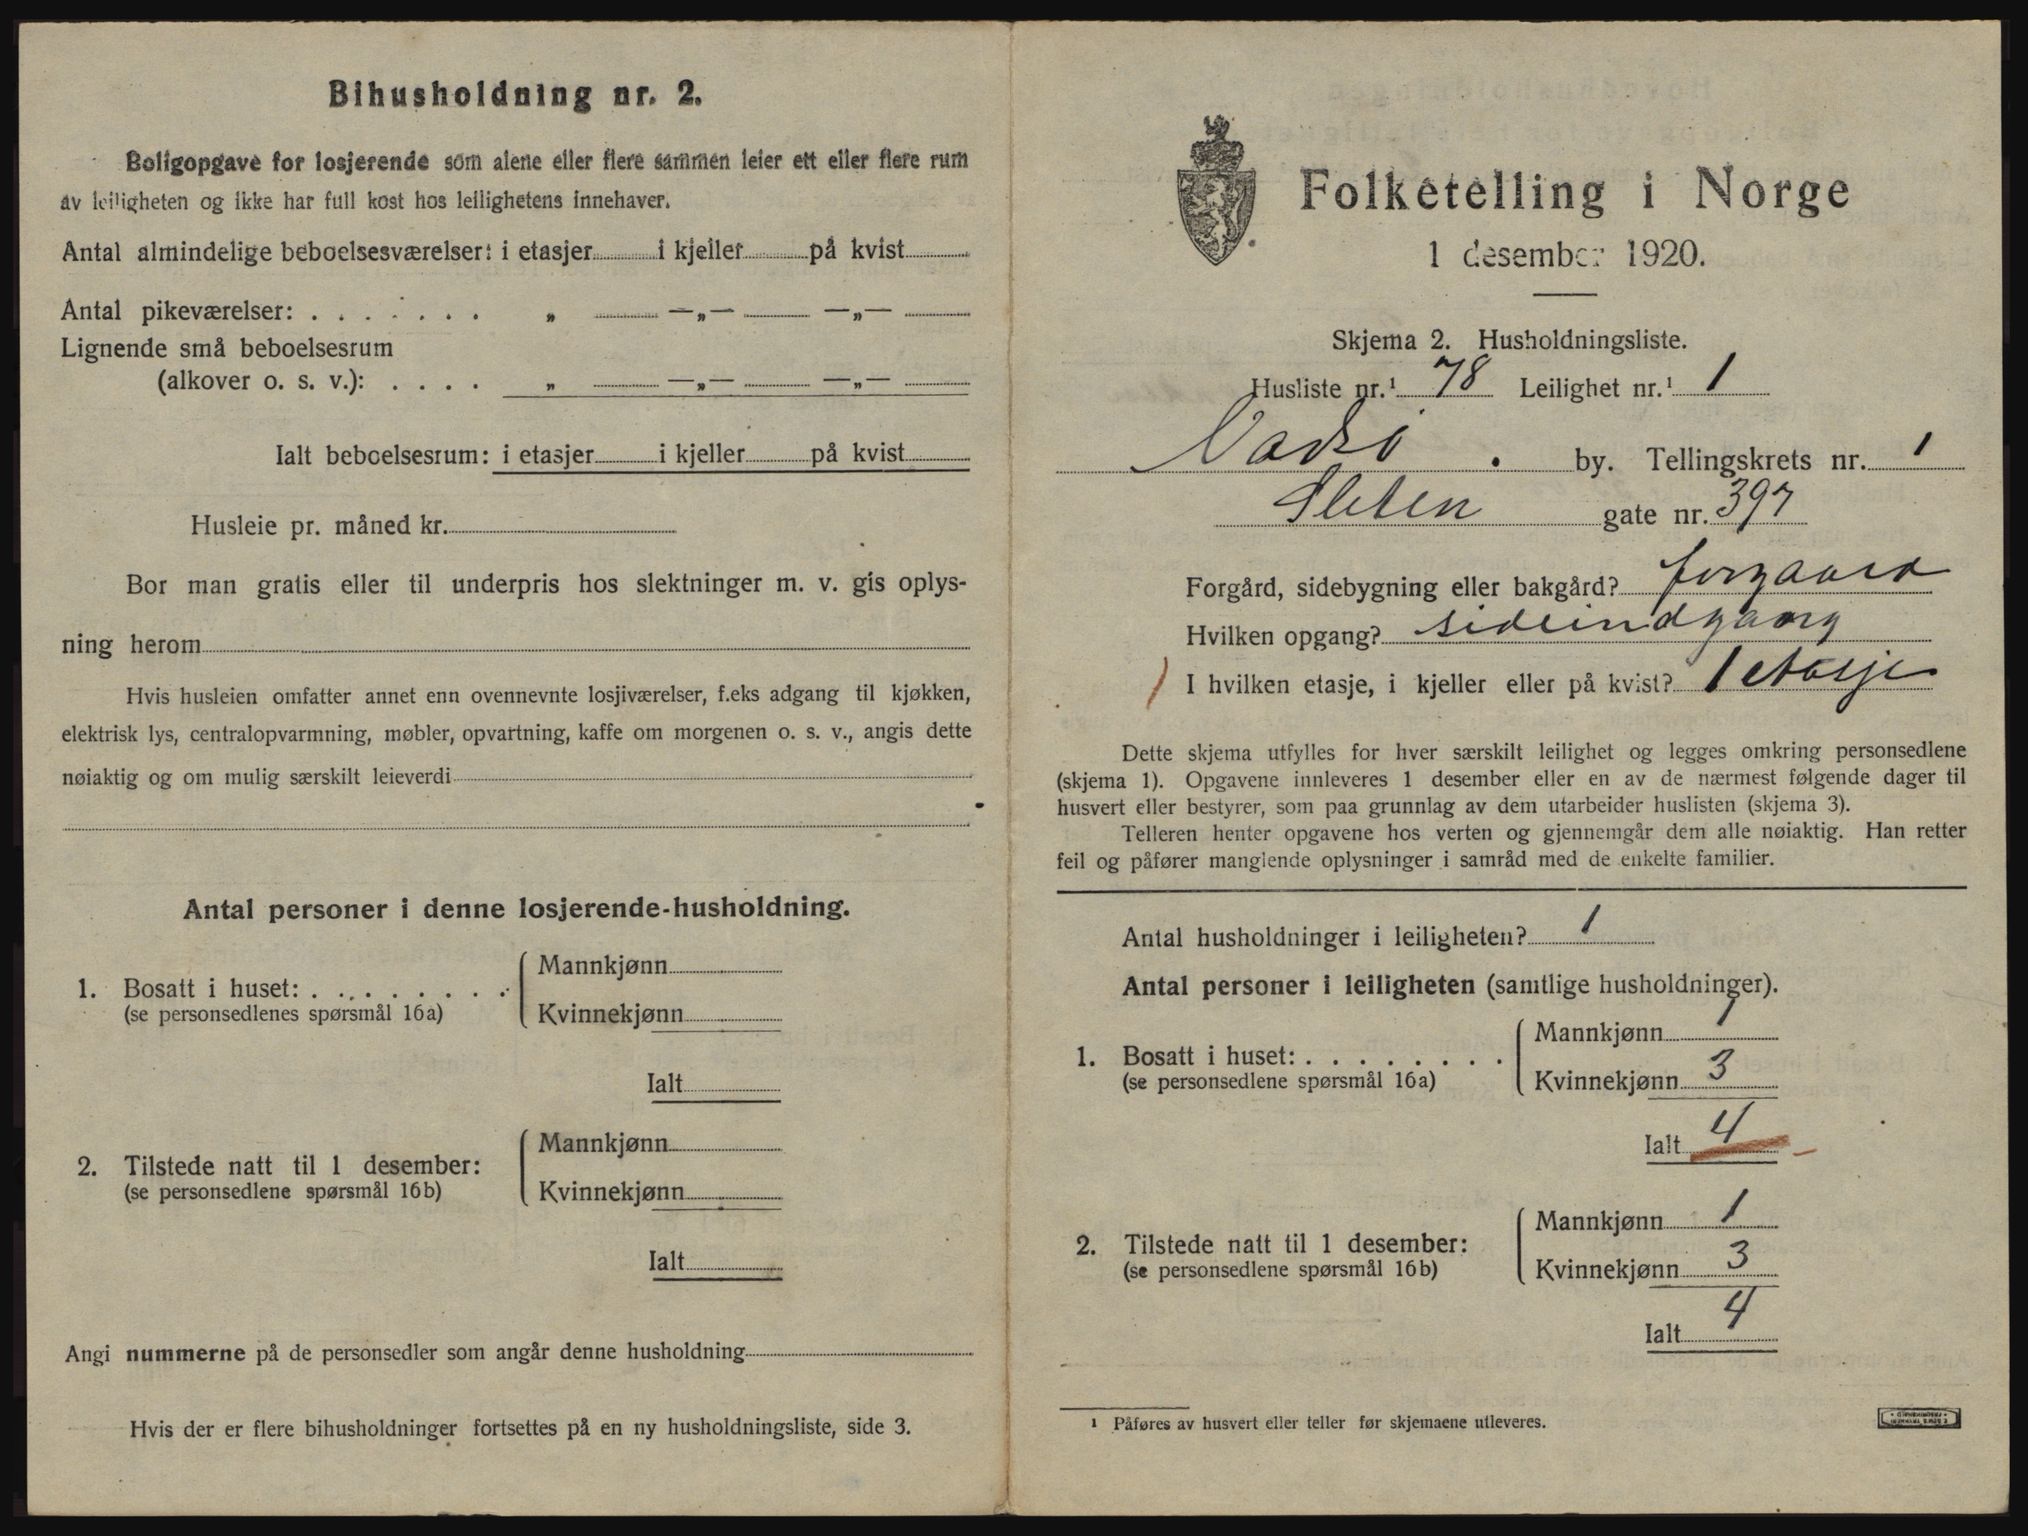 Bihusholdning nr. 2.
Boligopgave for losjerende som alene eller flere sammen leier ett eller flere rum
av leiligheten og ikke har full kost hos leilighetens innehaver.
Antal almindelige beboelsesværelser: i etasjer i kjeller på kvist
Antal pikeværelser: . . . . . . . „ —„— —„—
Lignende små beboelsesrum
(alkover o. s. v.): . . . . „ —„— —„—
Ialt beboelsesrum: i etasjer i kjeller på kvist
Husleie pr. måned kr.
Bor man gratis eller til underpris hos slektninger m. v. gis oplys-
ning herom
Hvis husleien omfatter annet enn ovennevnte losjiværelser, f.eks adgang til kjøkken,
elektrisk lys, centralopvarmning, møbler, opvartning, kaffe om morgenen o. s. v., angis dette
nøiaktig og om mulig særskilt leieverdi
Antal personer i denne losjerende-husholdning.
Mannkjønn
1. Bosatt i huset: . . . . . . . .
(se personsedlenes spørsmål 16a)
Kvinnekjønn
Ialt
Mannkjønn
2. Tilstede natt til 1 desember:
(se personsedlene spørsmål 16b)
Kvinnekjønn
Ialt
Angi nummerne på de personsedler som angår denne husholdning
Hvis der er flere bihusholdninger fortsettes på en ny husholdningsliste, side 3.
Folketelling i Norge
1 desember 1920.
Skjema 2. Husholdningsliste.
Husliste nr.¹ 78 Leilighet nr.¹ 1
Vadsö . by. Tellingskrets nr. 1
Sleten gate nr. 397
Forgård, sidebygning eller bakgård? forgaard
Hvilken opgang? sideindgang
1 I hvilken etasje, i kjeller eller på kvist? 1 etasje
Dette skjema utfylles for hver særskilt leilighet og legges omkring personsedlene
(skjema 1). Opgavene innleveres 1 desember eller en av de nærmest følgende dager til
husvert eller bestyrer, som paa grunnlag av dem utarbeider huslisten (skjema 3).
Telleren henter opgavene hos verten og gjennemgår dem alle nøiaktig. Han retter
feil og påfører manglende oplysninger i samråd med de enkelte familier.
Antal husholdninger i leiligheten? 1
Antal personer i leiligheten (samtlige husholdninger).
Mannkjønn 1
1. Bosatt i huset: . . . . . . . .
(se personsedlene spørsmål 16a)
Kvinnekjønn 3
Ialt 4
Mannkjønn 1
2. Tilstede natt til 1 desember:
(se personsedlene spørsmål 16b)
Kvinnekjønn 3
Ialt 4
¹ Påføres av husvert eller teller før skjemaene utleveres.